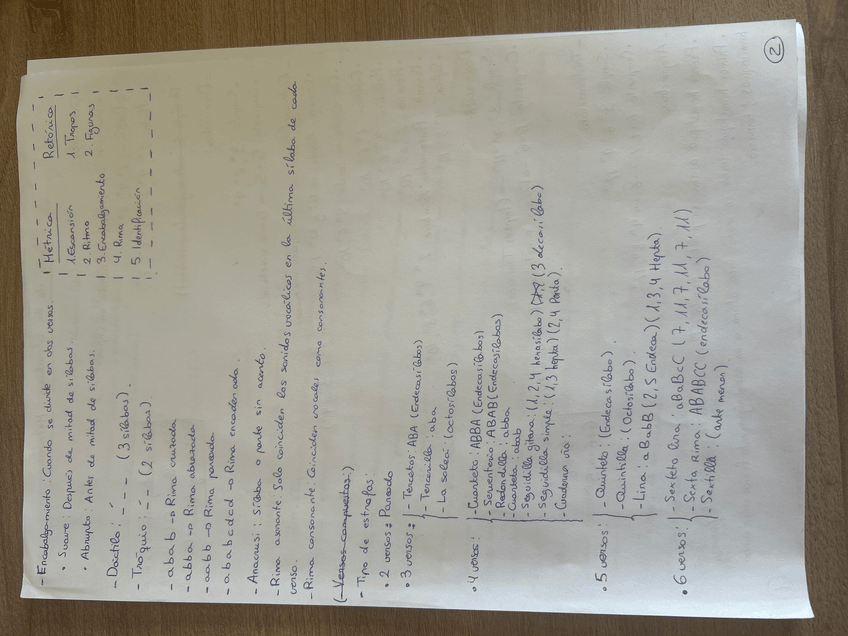 - Encabalgamiento: Cuando se divide en dos versos.
• Suave: Después de mitad de sílabas
• Abrupto: Antes de mitad de sílabas.
- Dáctilo: - - - (3 sílabas).
- Tróquio: - - (2 sílabas)
Métrica
1. Escansión
2. Ritmo
3. Encabalgamiento
4. Rima
5. Identificación
Retórica
1. Tropos
2. Figuras
- abab → Rima cruzada
- abba → Rima abrazada
- aabb → Rima pareada
- ababcdcd → Rima encadenada.
- Anacrusi: Sílaba o parte sin acento.
- Rima asonante: Solo coinciden los sonidos vocálicos en la última sílaba de cada
verso.
- Rima consonante: Coinciden vocales como consonantes.
(- Versos compuestos:)
- Tipo de estrofas:
• 2 versos: Pareado
• 3 versos: - Tercetos: ABA (Endecasílabos)
- Tercerilla: aba
- La soleá: (octosílabos)
• 4 versos: - Cuarteto: ABBA (Endecasílabos)
- Serventesio: ABAB (Endecasílabos)
- Redondilla: abba
- Cuarteta: abab
- Seguidilla gitana: (1,2,4 hexasílabo) (3 decasílabo)
- Seguidilla simple: (1,3 hepta) (2,4 Penta).
- Cuaderna vía:
• 5 versos: - Quinteto: (Endecasílabo).
- Quintilla: (Octosílabo).
- Lira: aBabB (2,5 Endeca) (1,3,4 Hepta)
• 6 versos: - Sexteto lira: aBaBcC (7, 11, 7, 11, 7, 11)
- Sexta Rima: ABABCC (endecasílabo)
- Sextilla: (arte menor)
2